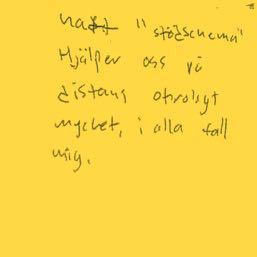 "stödschema"
Hjälper oss på
distans otroligt
mycket, i alla fall
mig.